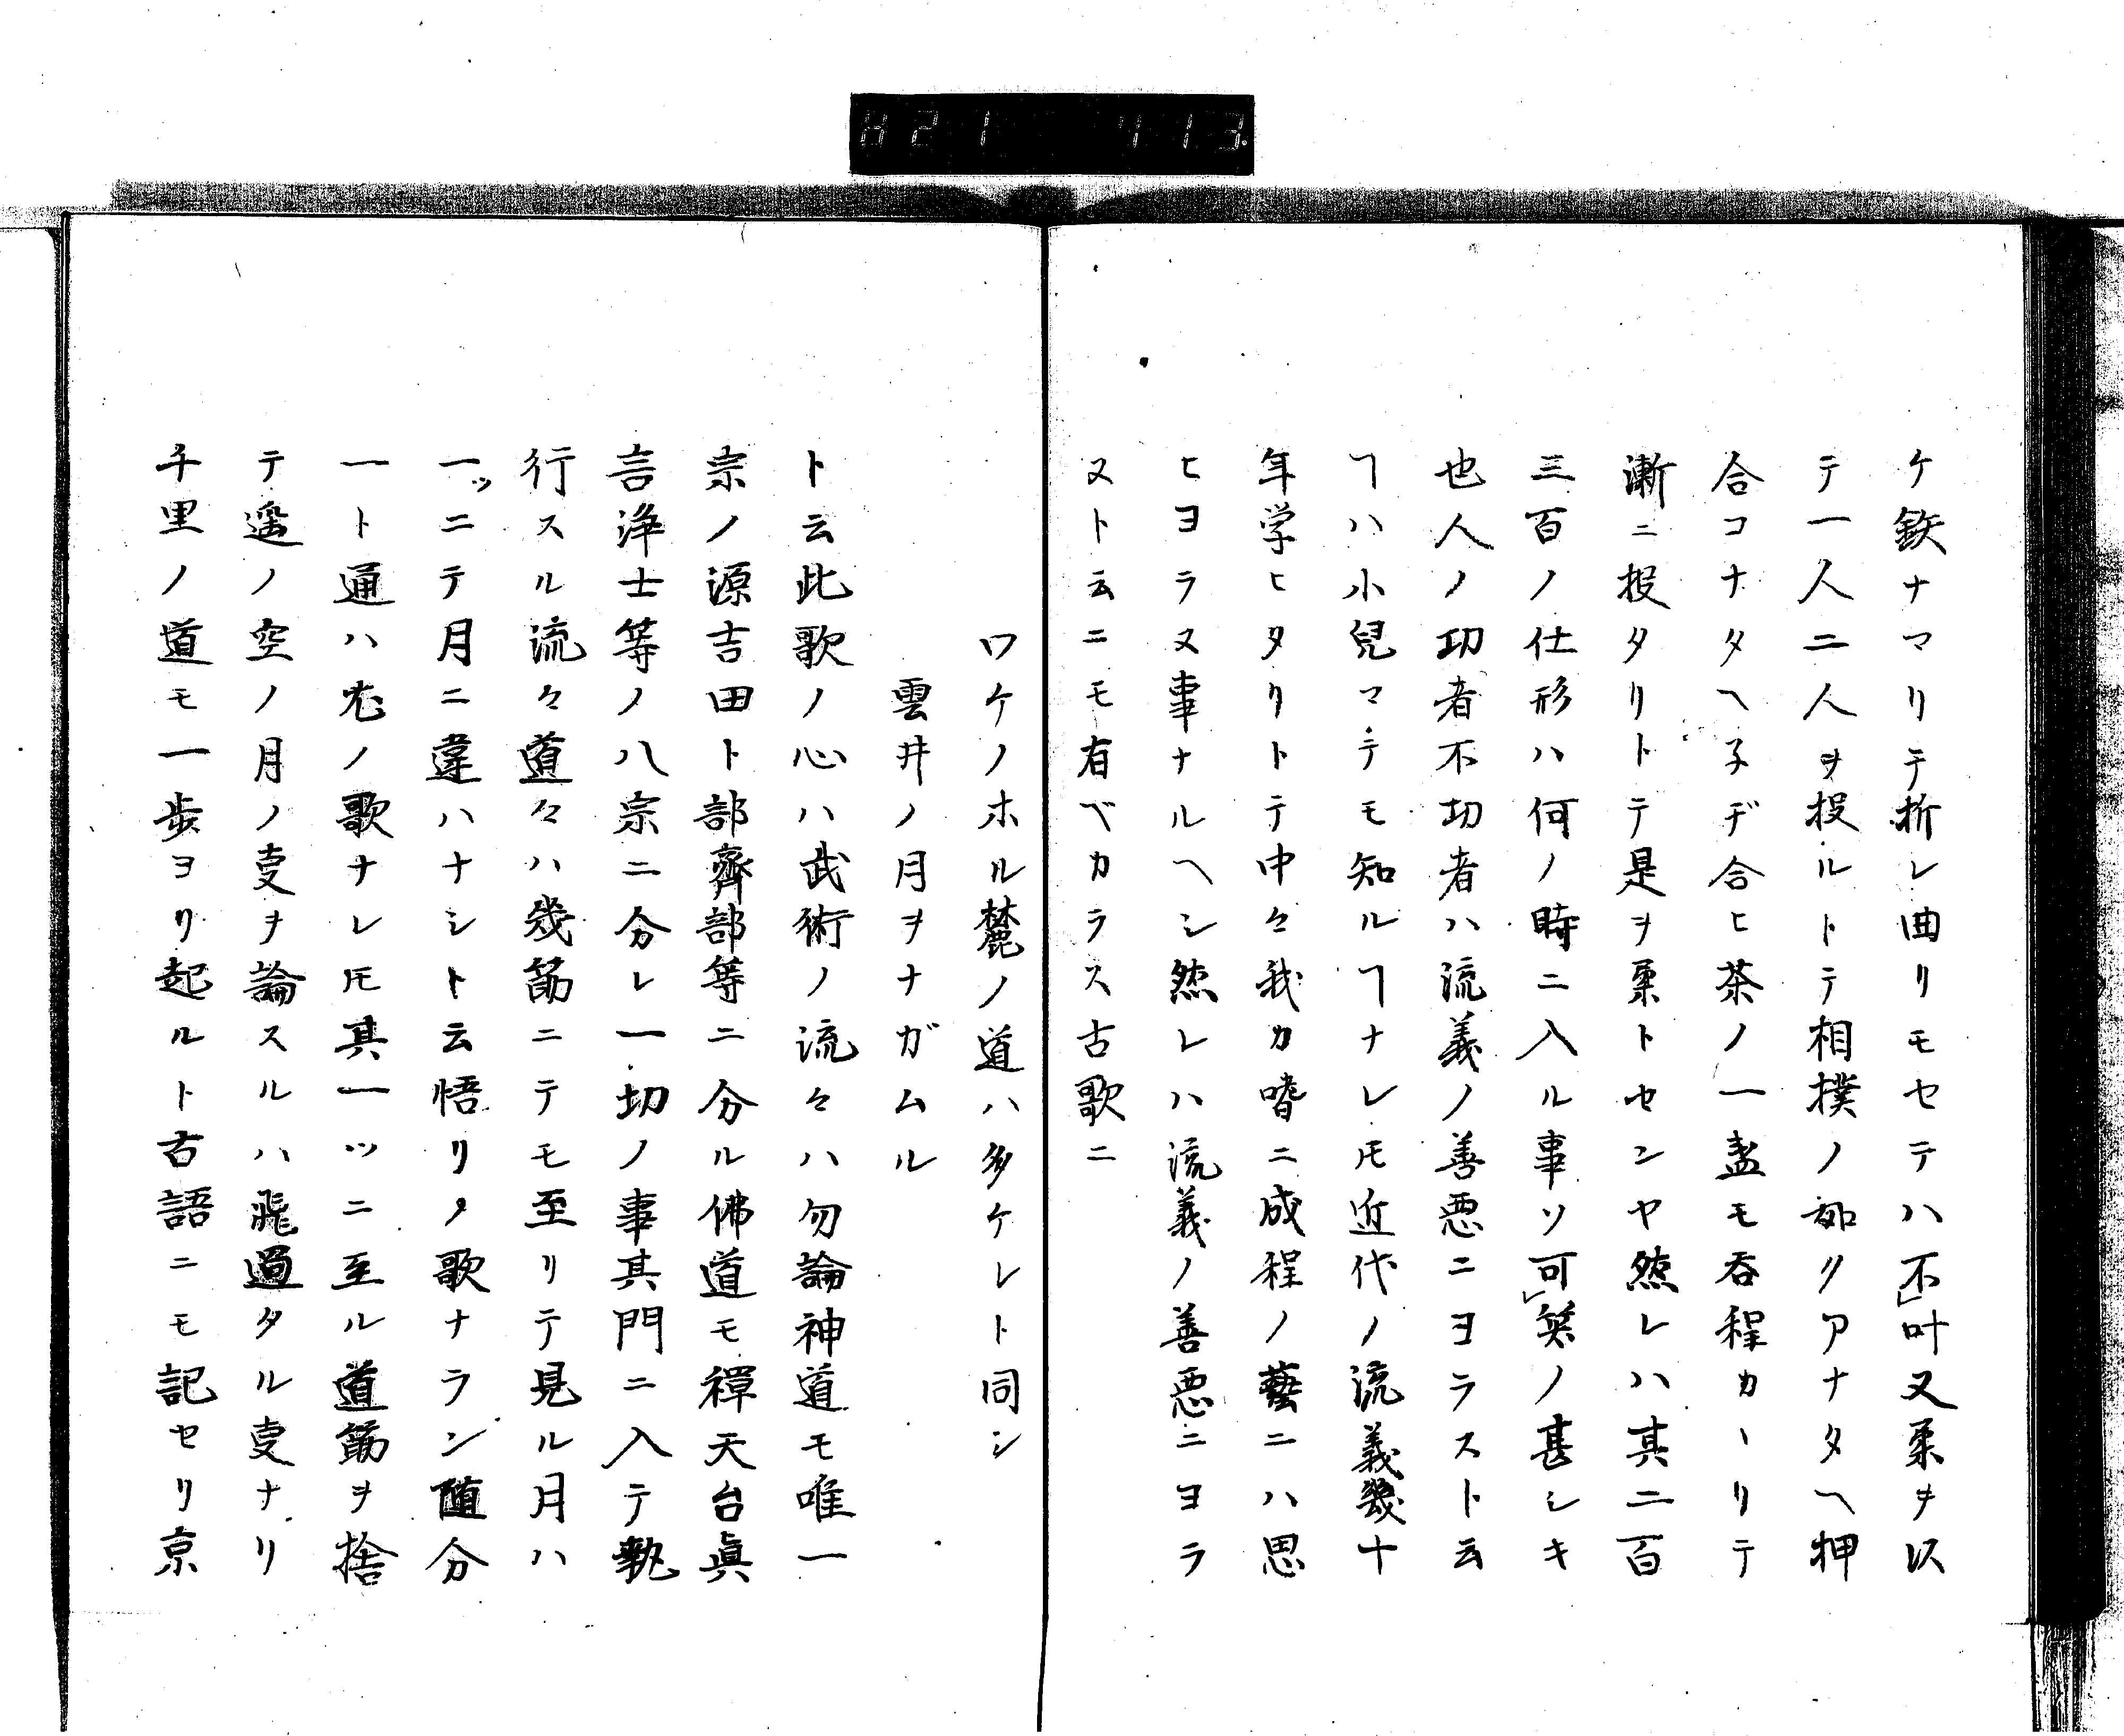 H21 413.
ケ鉄ナマリテ折レ曲リモセテハ不叶又柔ヲ以
テ一人二人ヲ投ルトテ相撲ノ如クアナタヘ押
合コナタヘ子ヂ合ヒ茶ノ一盞モ呑程カヽリテ
漸ニ投タリトテ是ヲ柔トセンヤ然レハ其二百
三百ノ仕形ハ何ノ時ニ入ル事ソ可レ笑ノ甚シキ
也人ノ功者不功者ハ流義ノ善悪ニヨラスト云
ヿハ小兒マテモ知ルヿナレ𪜈近代ノ流義幾十
年学ヒタリトテ中々我カ嗜ニ成程ノ藝ニハ思
ヒヨラヌ事ナルヘシ然レハ流義ノ善悪ニヨラ
ヌト云ニモ有ベカラス古歌ニ
ワケノホル麓ノ道ハ多ケレト同シ
雲井ノ月ヲナガムル
ト云此歌ノ心ハ武術ノ流々ハ勿論神道モ唯一
宗ノ源吉田ト部齊部等ニ分ル佛道モ禪天台眞
言浄土等ノ八宗ニ分レ一切ノ事其門ニ入テ執
行スル流々道々ハ幾筋ニテモ至リテ見ル月ハ
一ッニテ月ニ違ハナシト云悟リノ歌ナラン随分
一ト通ハ尤ノ歌ナレ𪜈其一ッニ至ル道筋ヲ捨
テ遥ノ空ノ月ノ叓ヲ論スルハ飛過タル叓ナリ
千里ノ道モ一歩ヨリ起ルト古語ニモ記セリ京